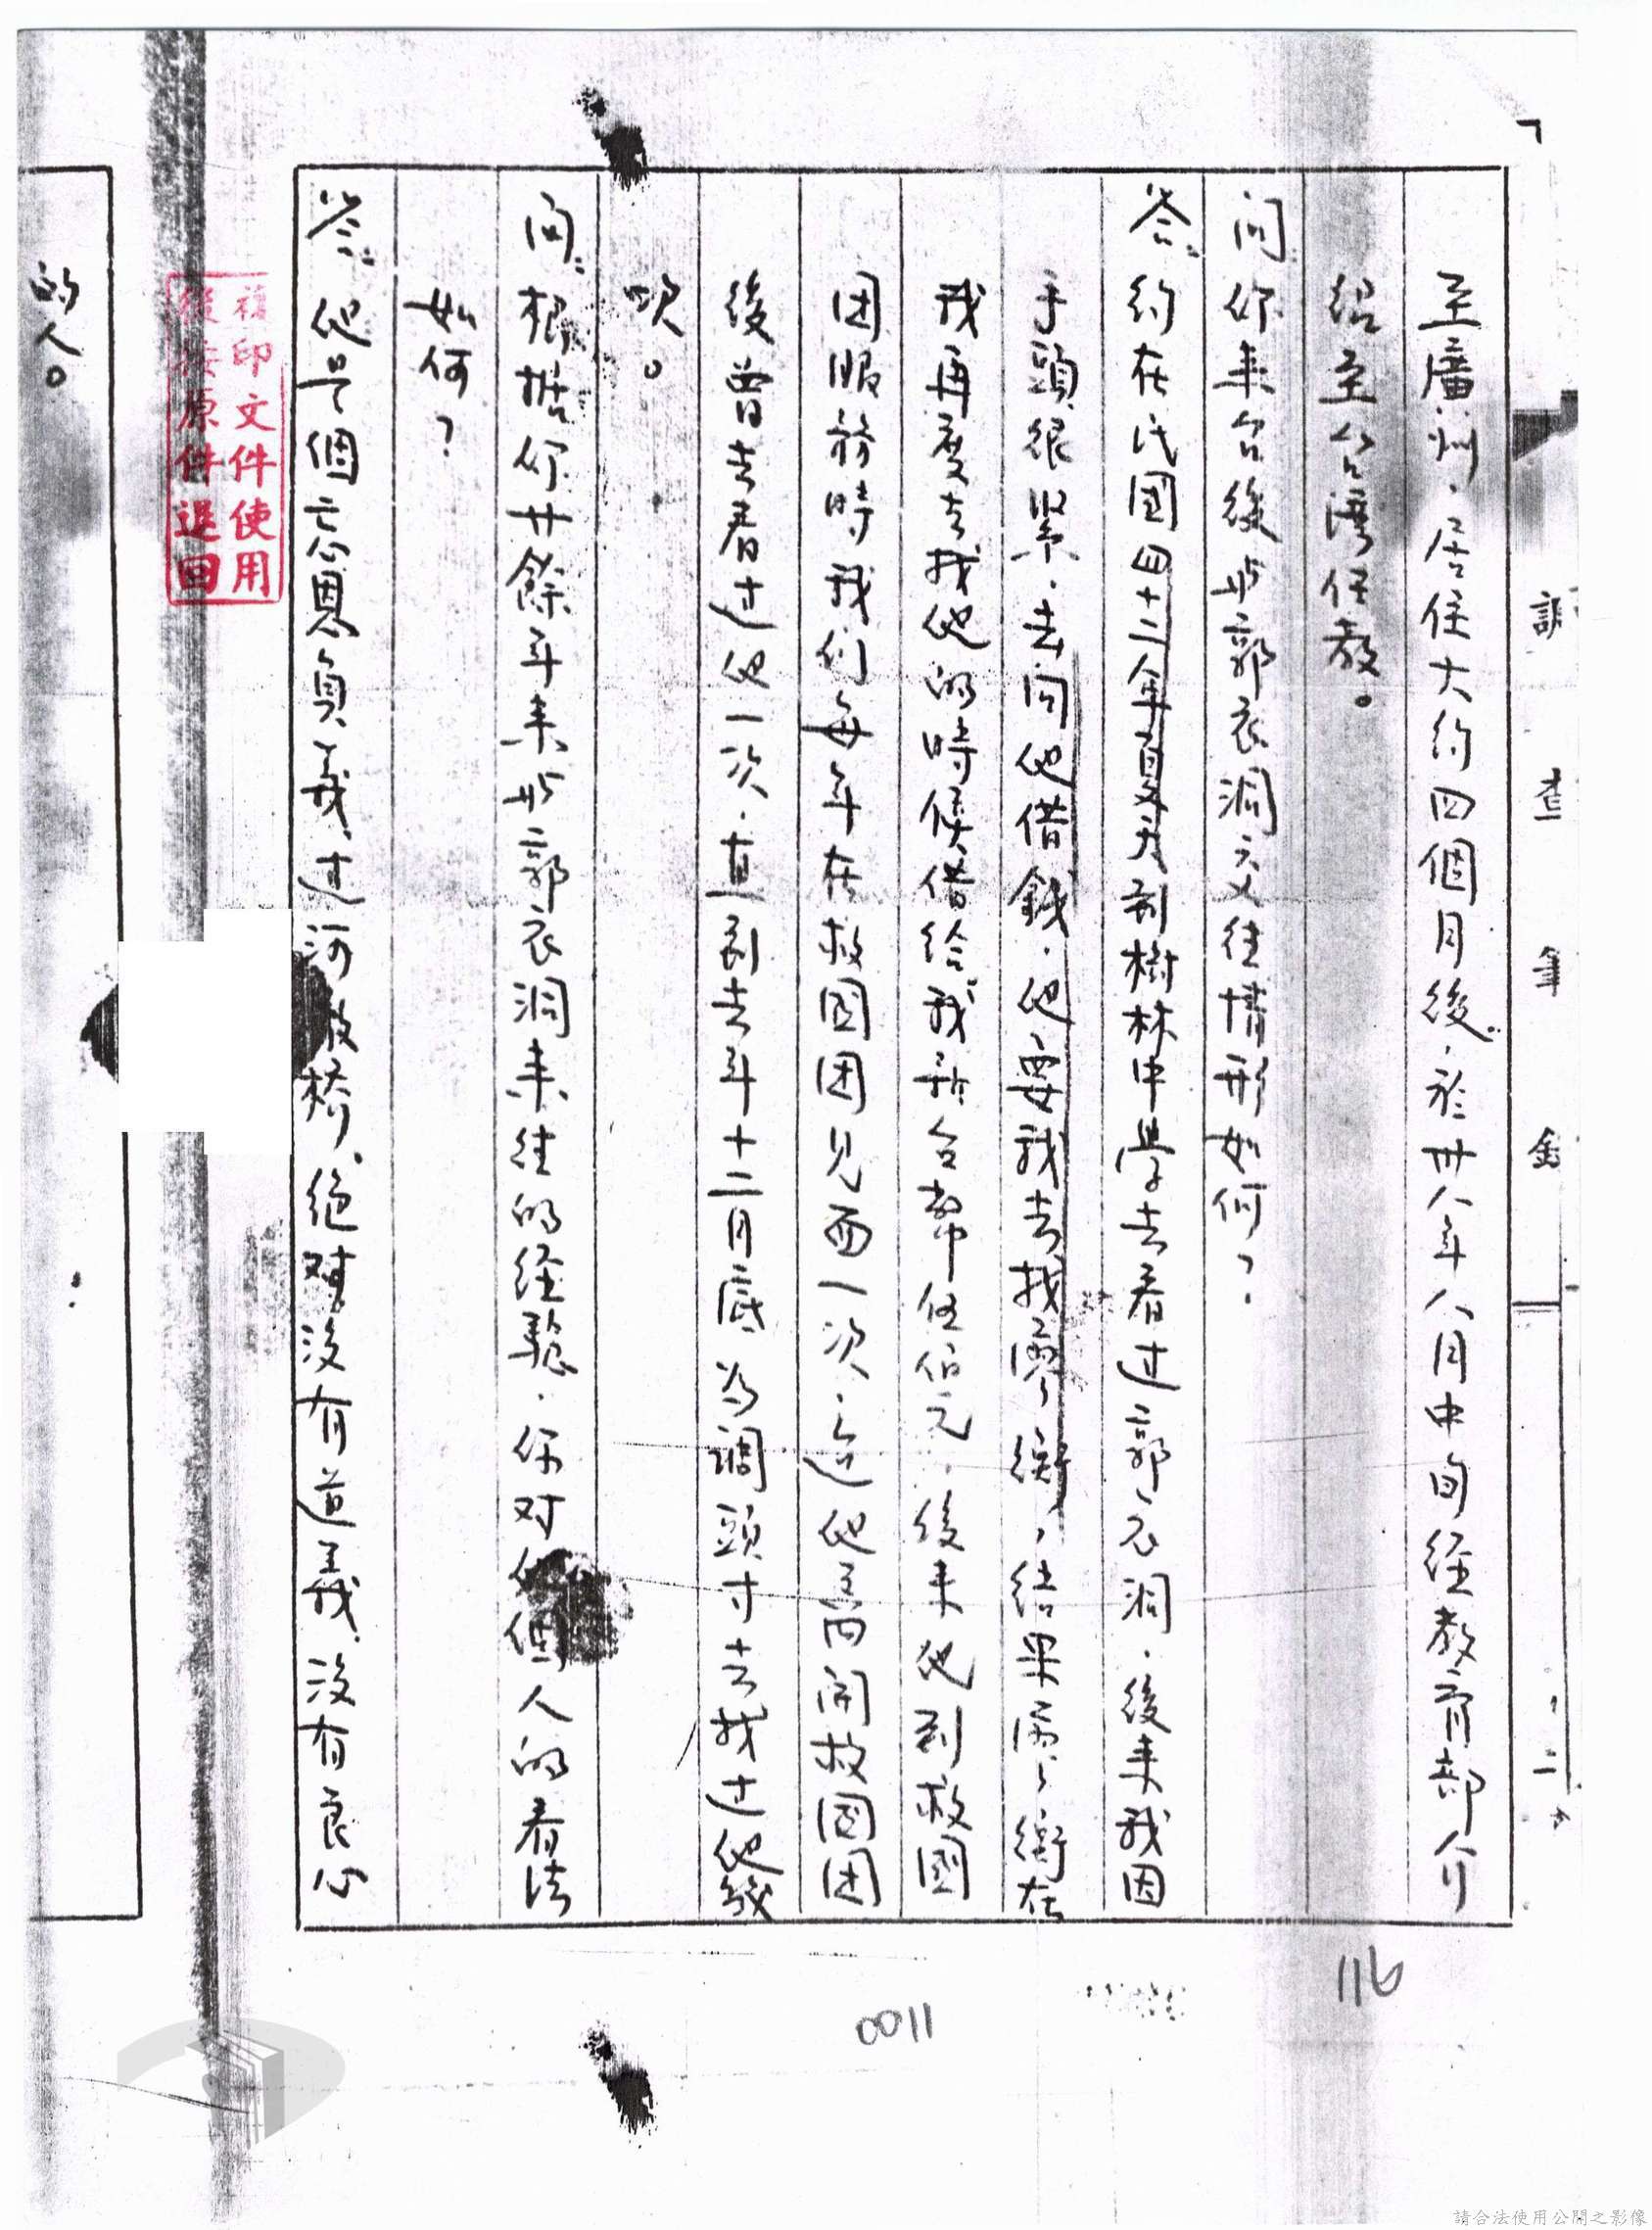 調查筆錄
至廣州，居住大約四個月後，於廿八年八月中旬经教育部介
紹至台灣任教。
问：你来台後与郭衣洞交往情形如何？
答：約在民國四十二年夏天到樹林中學去看过郭衣洞，後来我因
手頭很緊，去向他借錢，他要我去找廖衡，結果廖衡在
我再度去找他的時候借給我新台幣伍佰元，後来他到救國
团服務時我们每年在救国团見面一次，迄他离開救国团
後曾去看过他一次，直到去年十二月底為調頭寸去找过他幾
次。
问：根据你廿餘年来与郭衣洞来往的经驗，你对他個人的看法
如何？
答：他是個忘恩負義，过河拆橋，絕對沒有道義，沒有良心
的人。
複印文件使用
後按原件退回
116
0011
請合法使用公開之影像